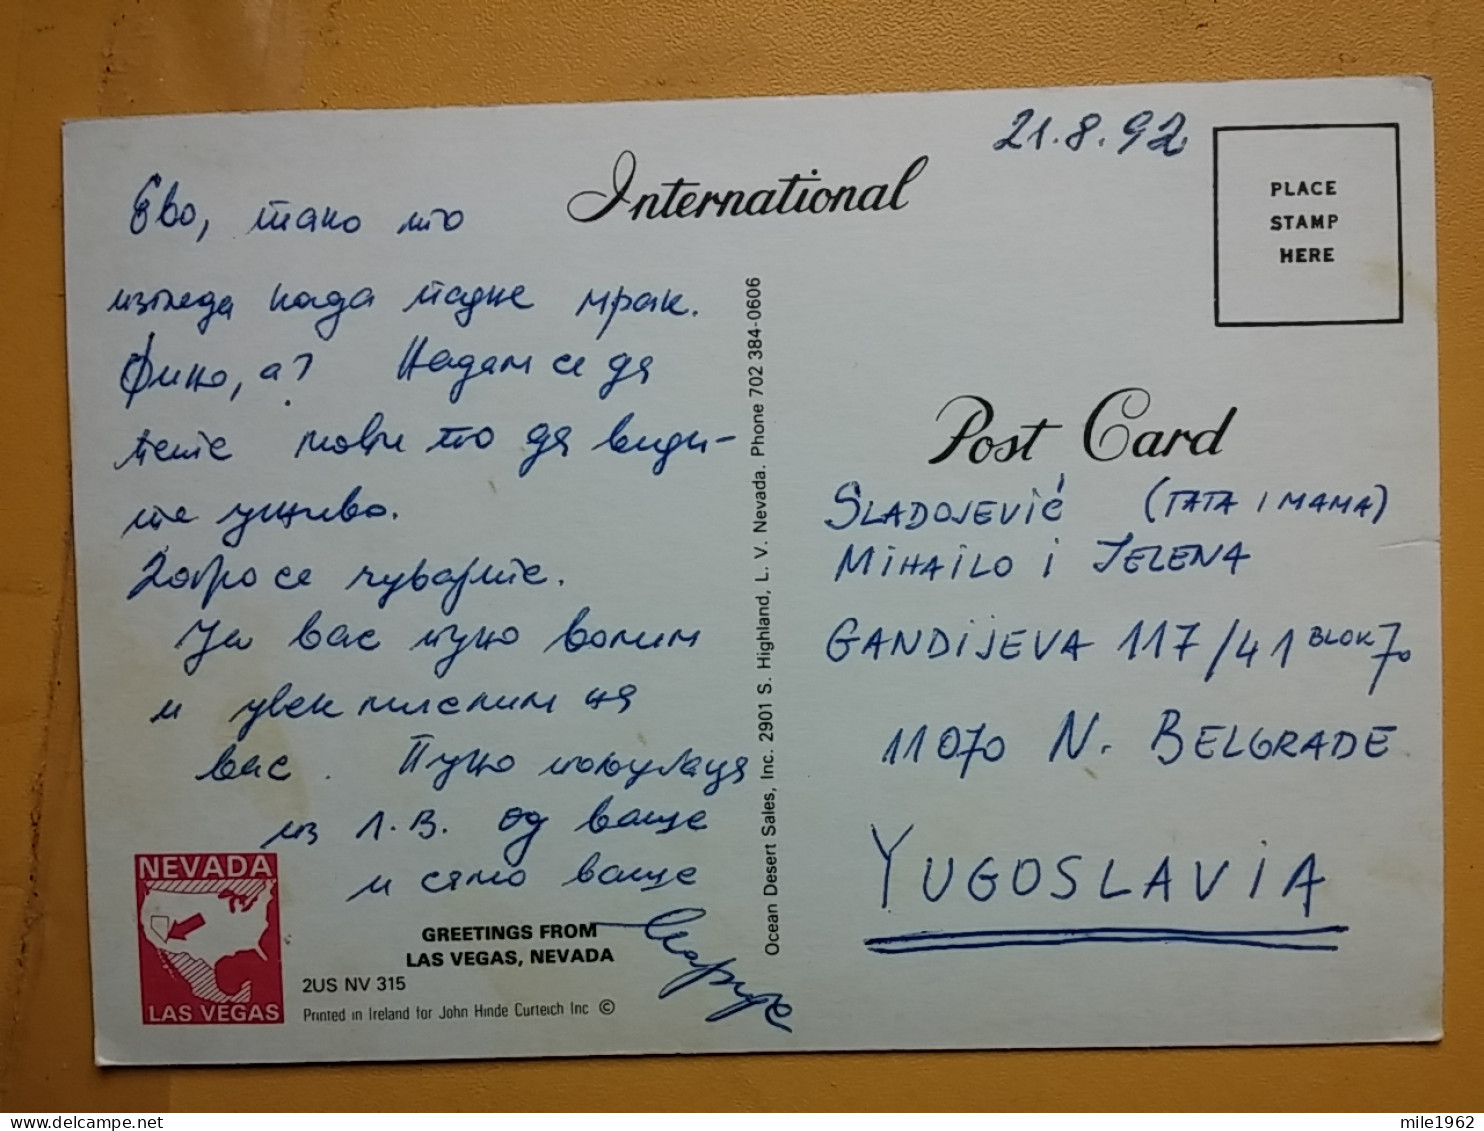 21.8.92
International
PLACE
STAMP
HERE
Ево, тако то
изгледа када падне мрак.
Фино, а? Надам се да
ћете моћи то да види-
те уживо.
Добро се чувајте.
Ја вас пуно волим
и увек мислим на
вас. Пуно пољубаца
из Л.В. од ваше
и само ваше
Марије
Post Card
SLADOJEVIĆ (TATA I MAMA)
MIHAILO I JELENA
GANDIJEVA 117/41 BLOK 70
11070 N. BELGRADE
YUGOSLAVIA
Ocean Desert Sales, Inc. 2901 S. Highland, L. V. Nevada. Phone 702 384-0606
NEVADA
LAS VEGAS
GREETINGS FROM
LAS VEGAS, NEVADA
2US NV 315
Printed in Ireland for John Hinde Curteich Inc ©
mile1962